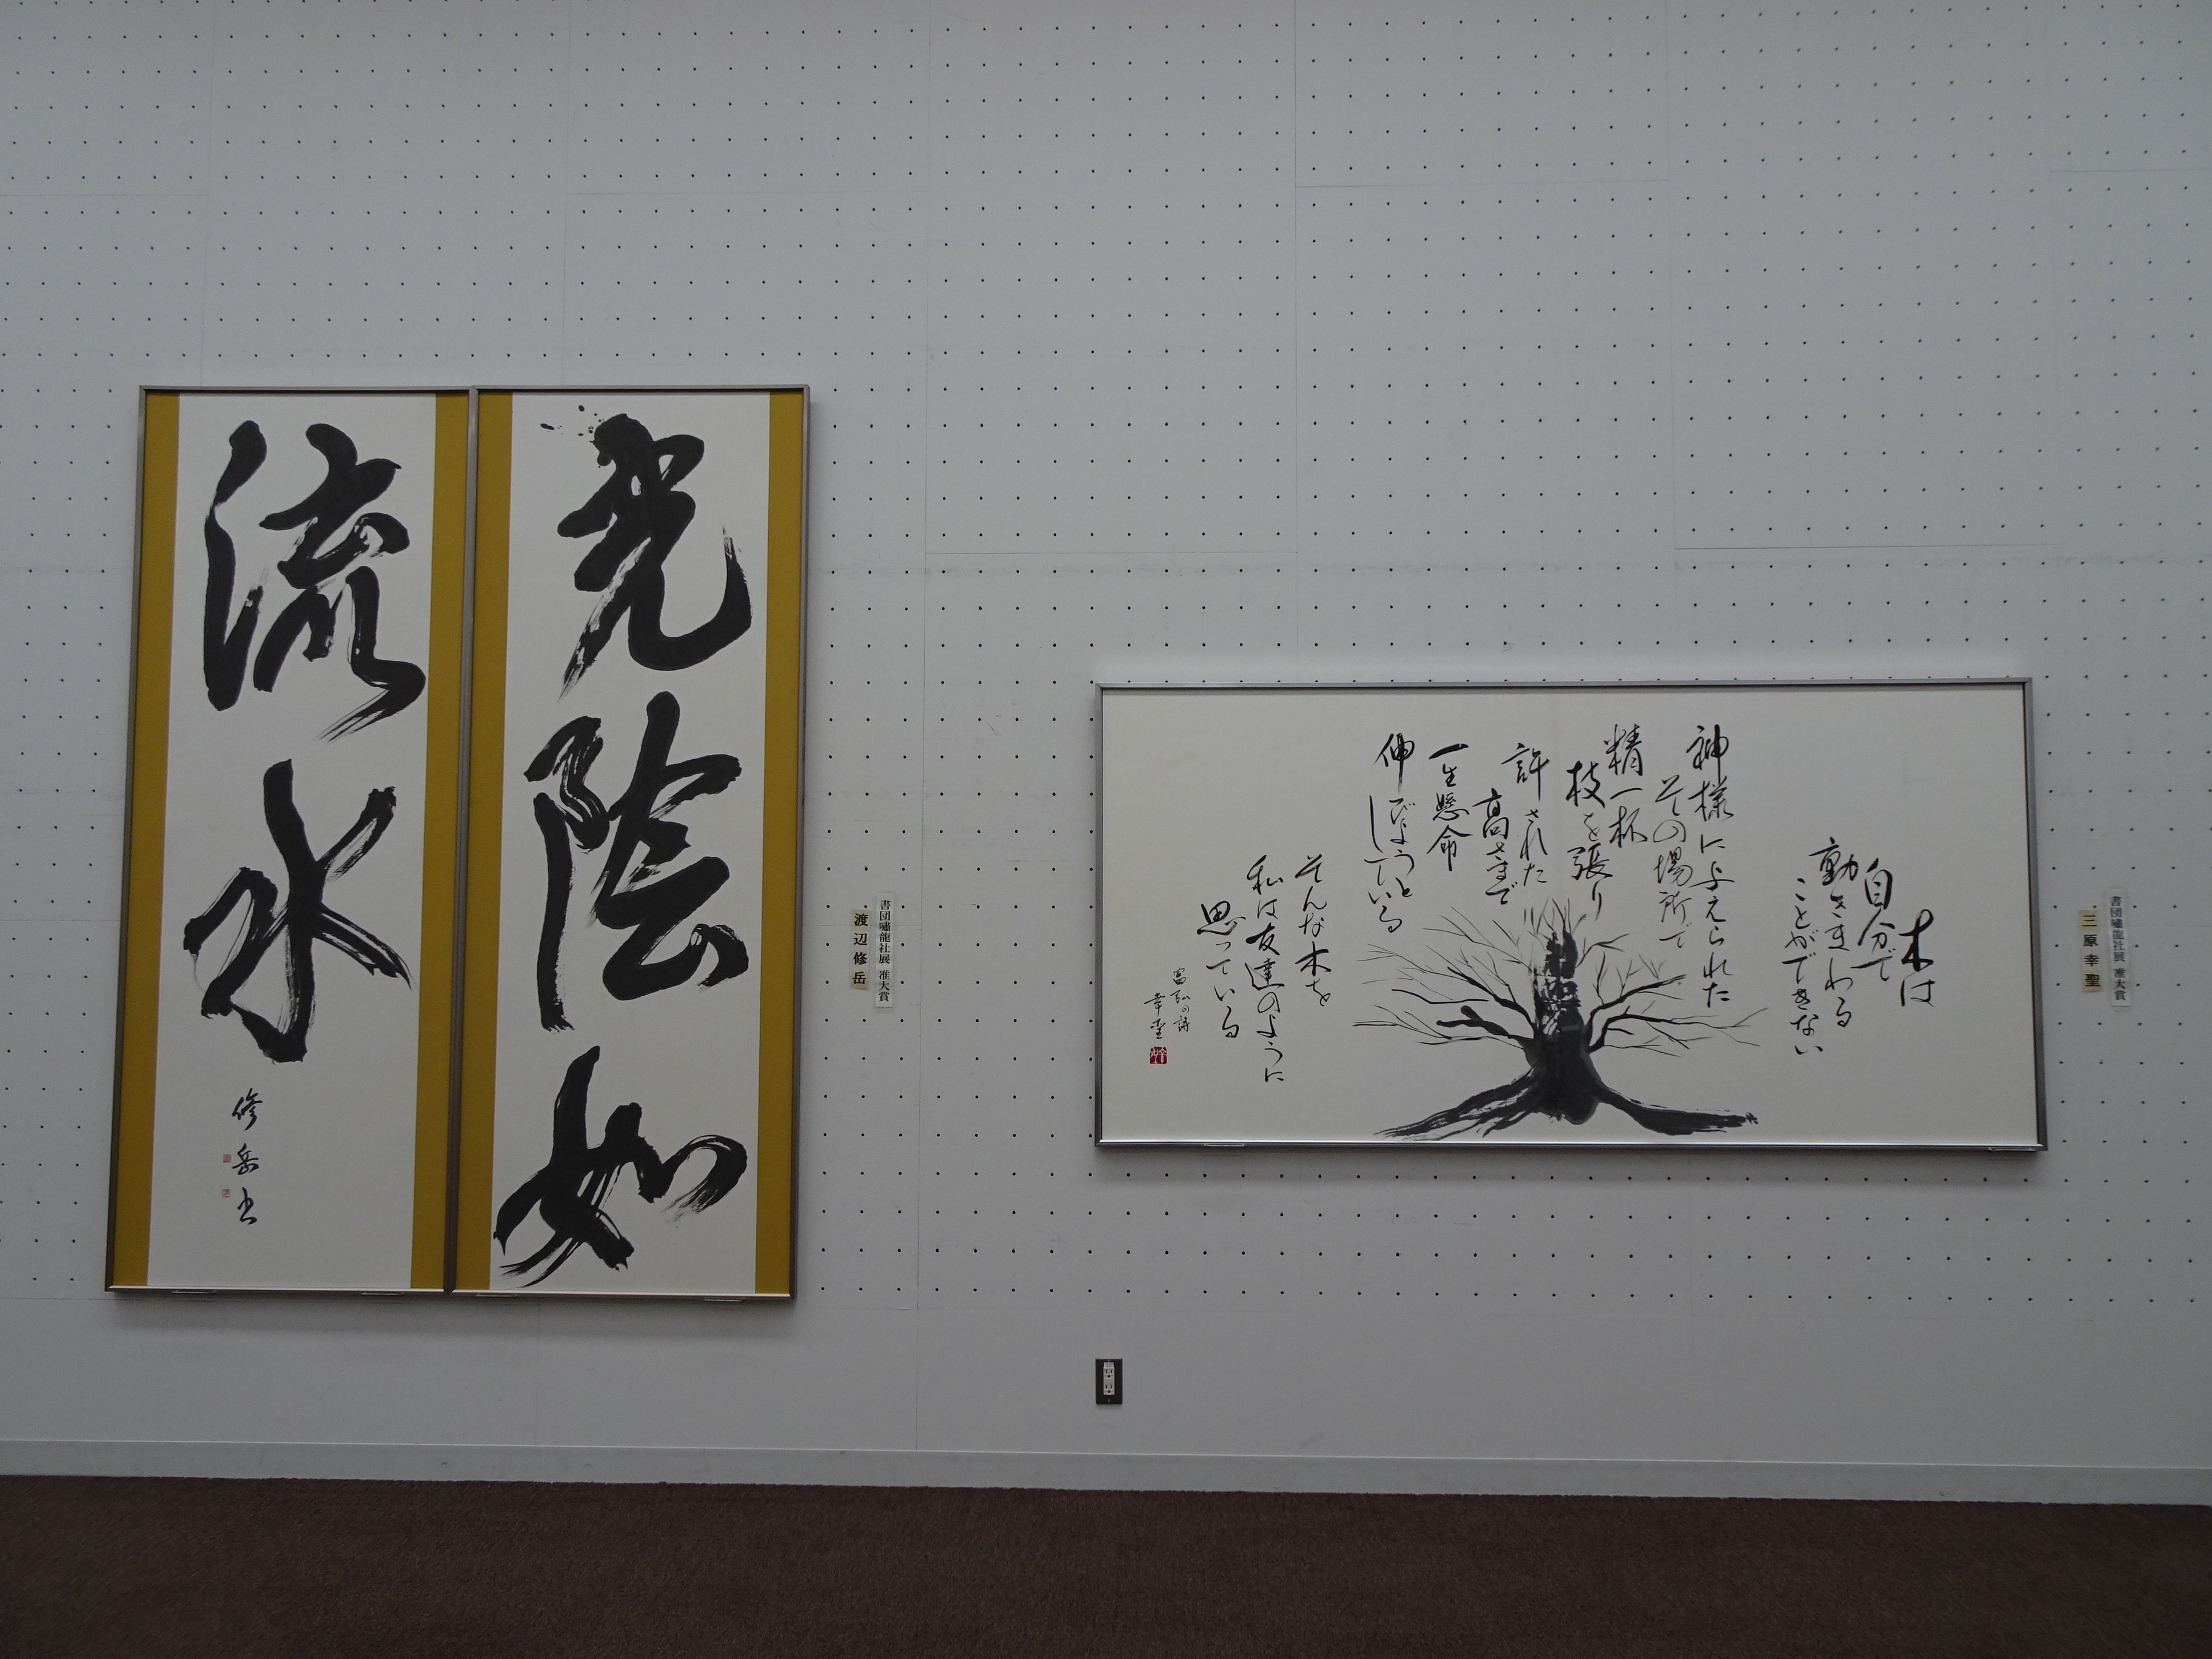 書団嘯龍社展 准大賞
三原幸聖
木は
自分で
動きまわる
ことができない
神様に与えられた
その場所で
精一杯
枝を張り
許された
高さまで
一生懸命
伸びようと
している
そんな木を
私は友達のように
思っている
富弘の詩
幸聖
書団嘯龍社展 准大賞
渡辺修岳
光陰如
流水
修岳書